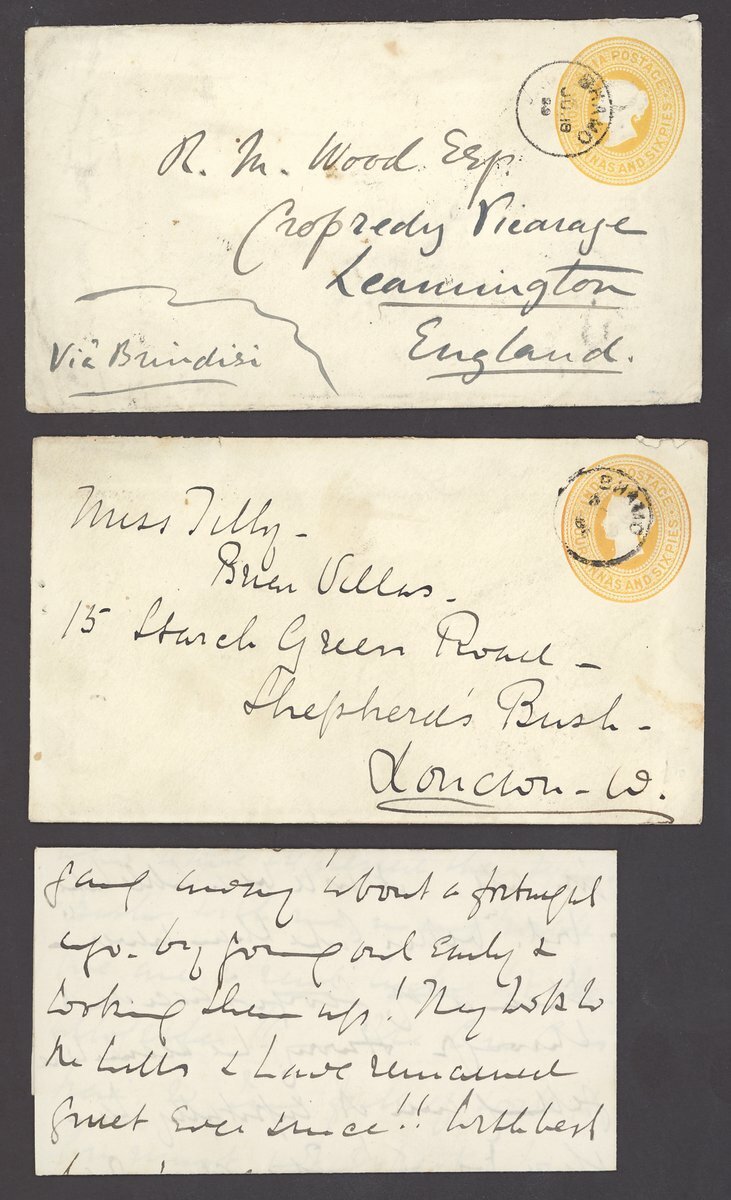 BHAMO
JU 18
89
INDIA POSTAGE
ANNAS AND SIX PIES
R. M. Wood Esq.
Cropredy Vicarage
Leamington
England.
Viâ Brindisi
BHAMO
POSTAGE
ANNAS AND SIX PIES
Miss Tilly -
Brier Villas -
15 Starch Green Road -
Shepherd's Bush -
London - W.
gang away about a fortnight
ago - by going out Early &
looking them up! They took to
the hills & have remained
quiet Ever since!! With best